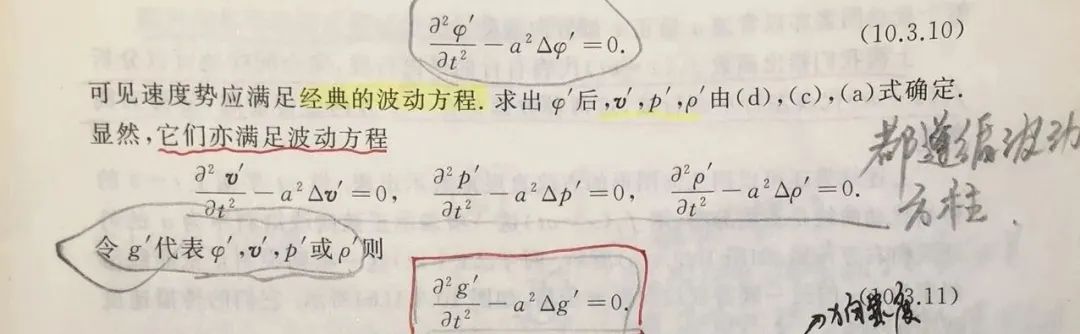 ∂²φ′/∂t² − a²Δφ′ = 0. (10.3.10)
可见速度势应满足经典的波动方程. 求出 φ′后, v′, p′, ρ′由(d),(c),(a)式确定.
显然,它们亦满足波动方程
∂²v′/∂t² − a²Δv′ = 0, ∂²p′/∂t² − a²Δp′ = 0, ∂²ρ′/∂t² − a²Δρ′ = 0.
都遵循波动
方程.
令 g′代表 φ′, v′, p′或 ρ′则
∂²g′/∂t² − a²Δg′ = 0. (10.3.11)